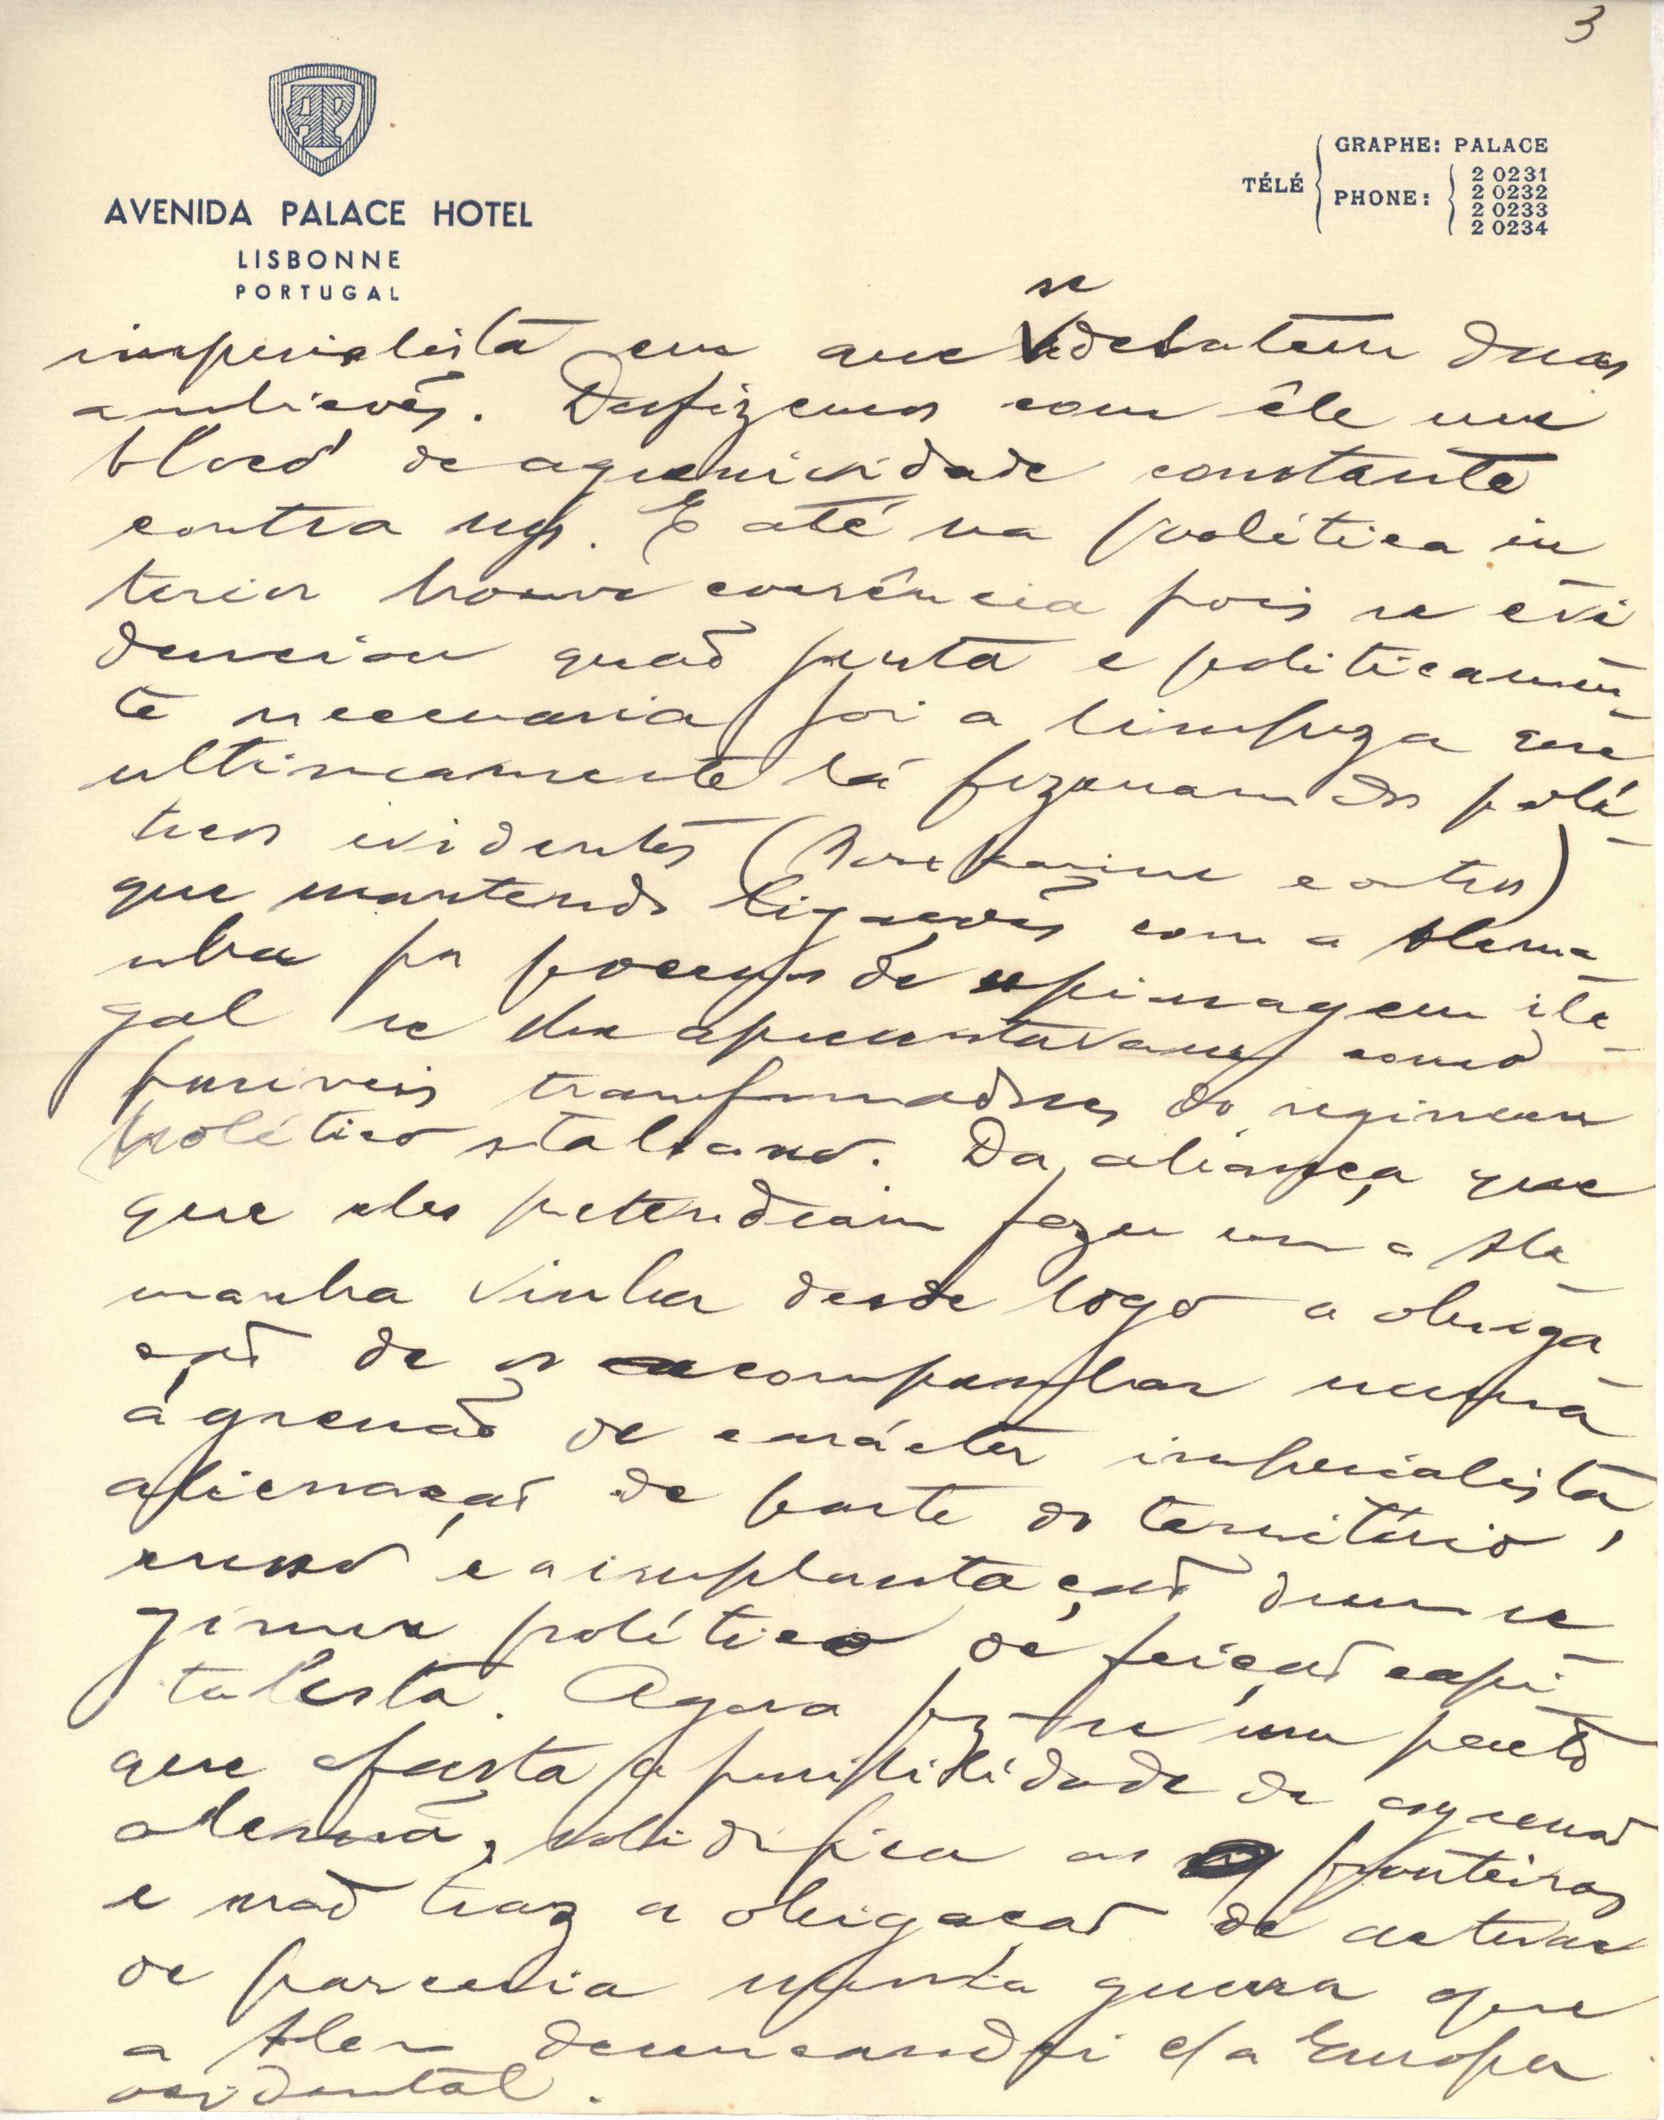 3
AP
AVENIDA PALACE HOTEL
LISBONNE
PORTUGAL
TÉLÉ
GRAPHE: PALACE
PHONE:
2 0231
2 0232
2 0233
2 0234
se
imperialista em que debatem duas
ambições. Desfizemos com êle um
bloco de agressividade constante
contra nós. E até na política in
terior houve coerência pois se evi
denciou quão justa e politicamen-
te necessaria foi a limpeza que
ultimamente lá fizeram dos polí-
ticos evidentes ( e outros)
que mantendo ligações com a Alema
nha por process de espionagem ile-
gal se lhe apresentavam como
possiveis transformadores do regimen
político staliano. Da aliança que
que eles pretendiam fazer com a Ale-
manha vinha desde logo a obriga
ção de os acompanhar numa
agressão de carácter imperialista,
alienação de parte do território
russo e a implantação dum re
gimen político de feição capi-
talista. Agora fez-se um pacto
que afasta a possibilidade de agressão
alemã, solidifica as fronteiras
e não traz a obrigação de activar
de parceria numa guerra que
a Alem desencandei c/ a Europa
ocidental.